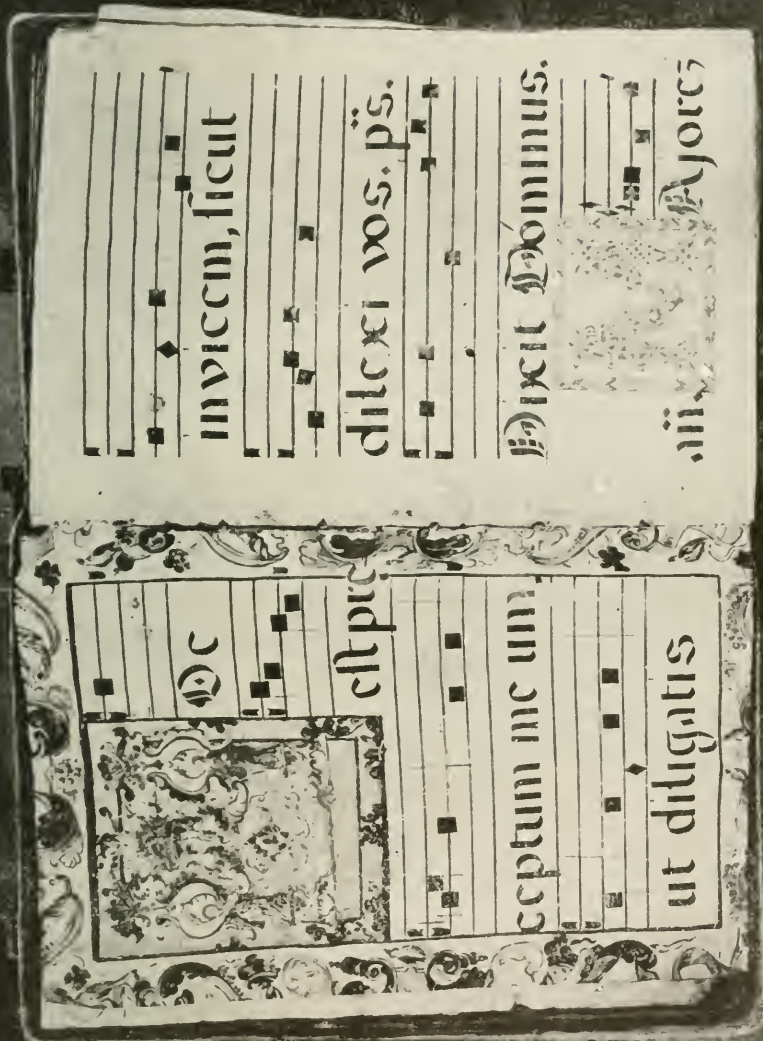 Oc
est pre
ceptum me um,
ut diligatis
invicem, sicut
dilexi vos. ps̄.
Dixit Dóminus.
añ. M Ajorē